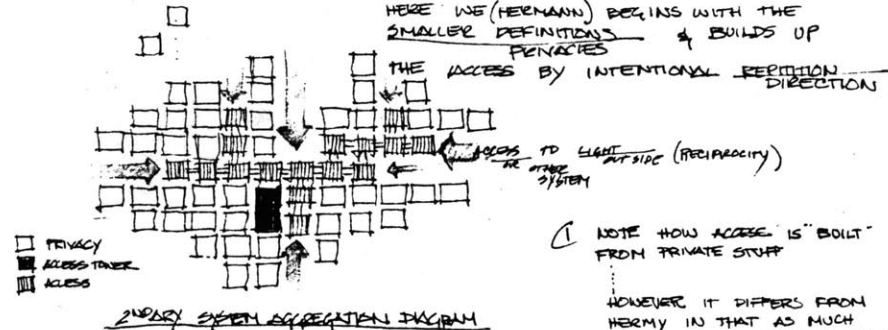 HERE WE (HERMANN) BEGINS WITH THE
SMALLER DEFINITIONS & BUILDS UP
PRIVACIES
THE ACCESS BY INTENTIONAL REPITITION
DIRECTION
ACCESS TO LIGHT OUTSIDE (RECIPROCITY)
OR OTHER
SYSTEM
① NOTE HOW ACCESS IS "BUILT"
FROM PRIVATE STUFF
HOWEVER IT DIFFERS FROM
HERMY IN THAT AS MUCH
PRIVACY
ACCESS TOWER
ACCESS
2NDARY SYSTEM AGGREGATION DIAGRAM